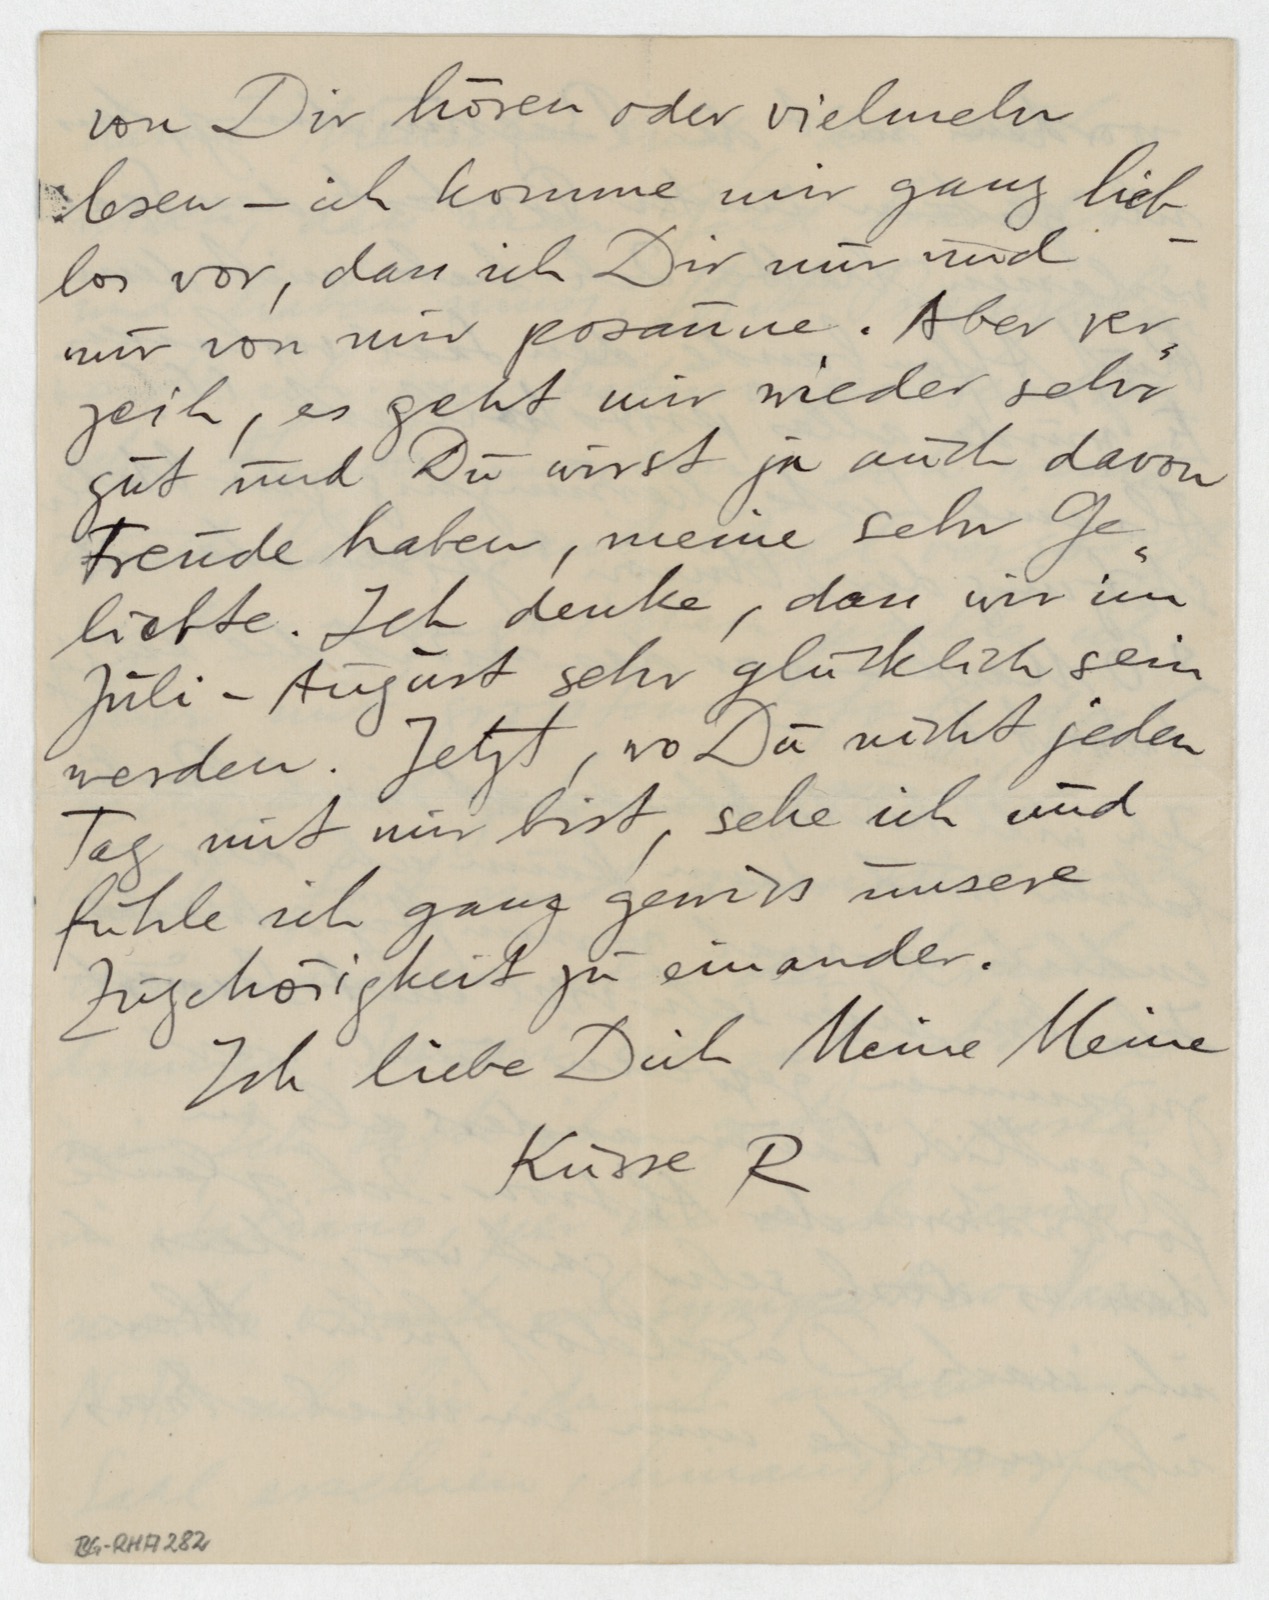 von Dir hören oder vielmehr
lesen – ich komme mir ganz lieb-
los vor, dass ich Dir nur und
nur von mir posaune. Aber ver-
zeih, es geht mir wieder sehr
gut und Du wirst ja auch davon
Freude haben, meine sehr Ge-
liebte. Ich denke, dass wir im
Juli – August sehr glücklich sein
werden. Jetzt, wo Du nicht jeden
Tag mit mir bist, sehe ich und
fühle ich ganz gewiss unsere
Zugehörigkeit zu einander.
Ich liebe Dich Meine Meine
Küsse R
BG-RHA 282